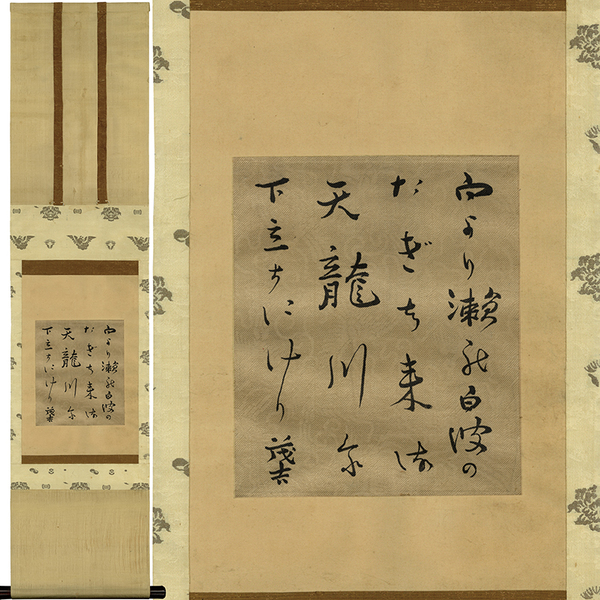 向より瀬能白波の
たぎち来流
天龍川尓
下立ちにけり 茂吉